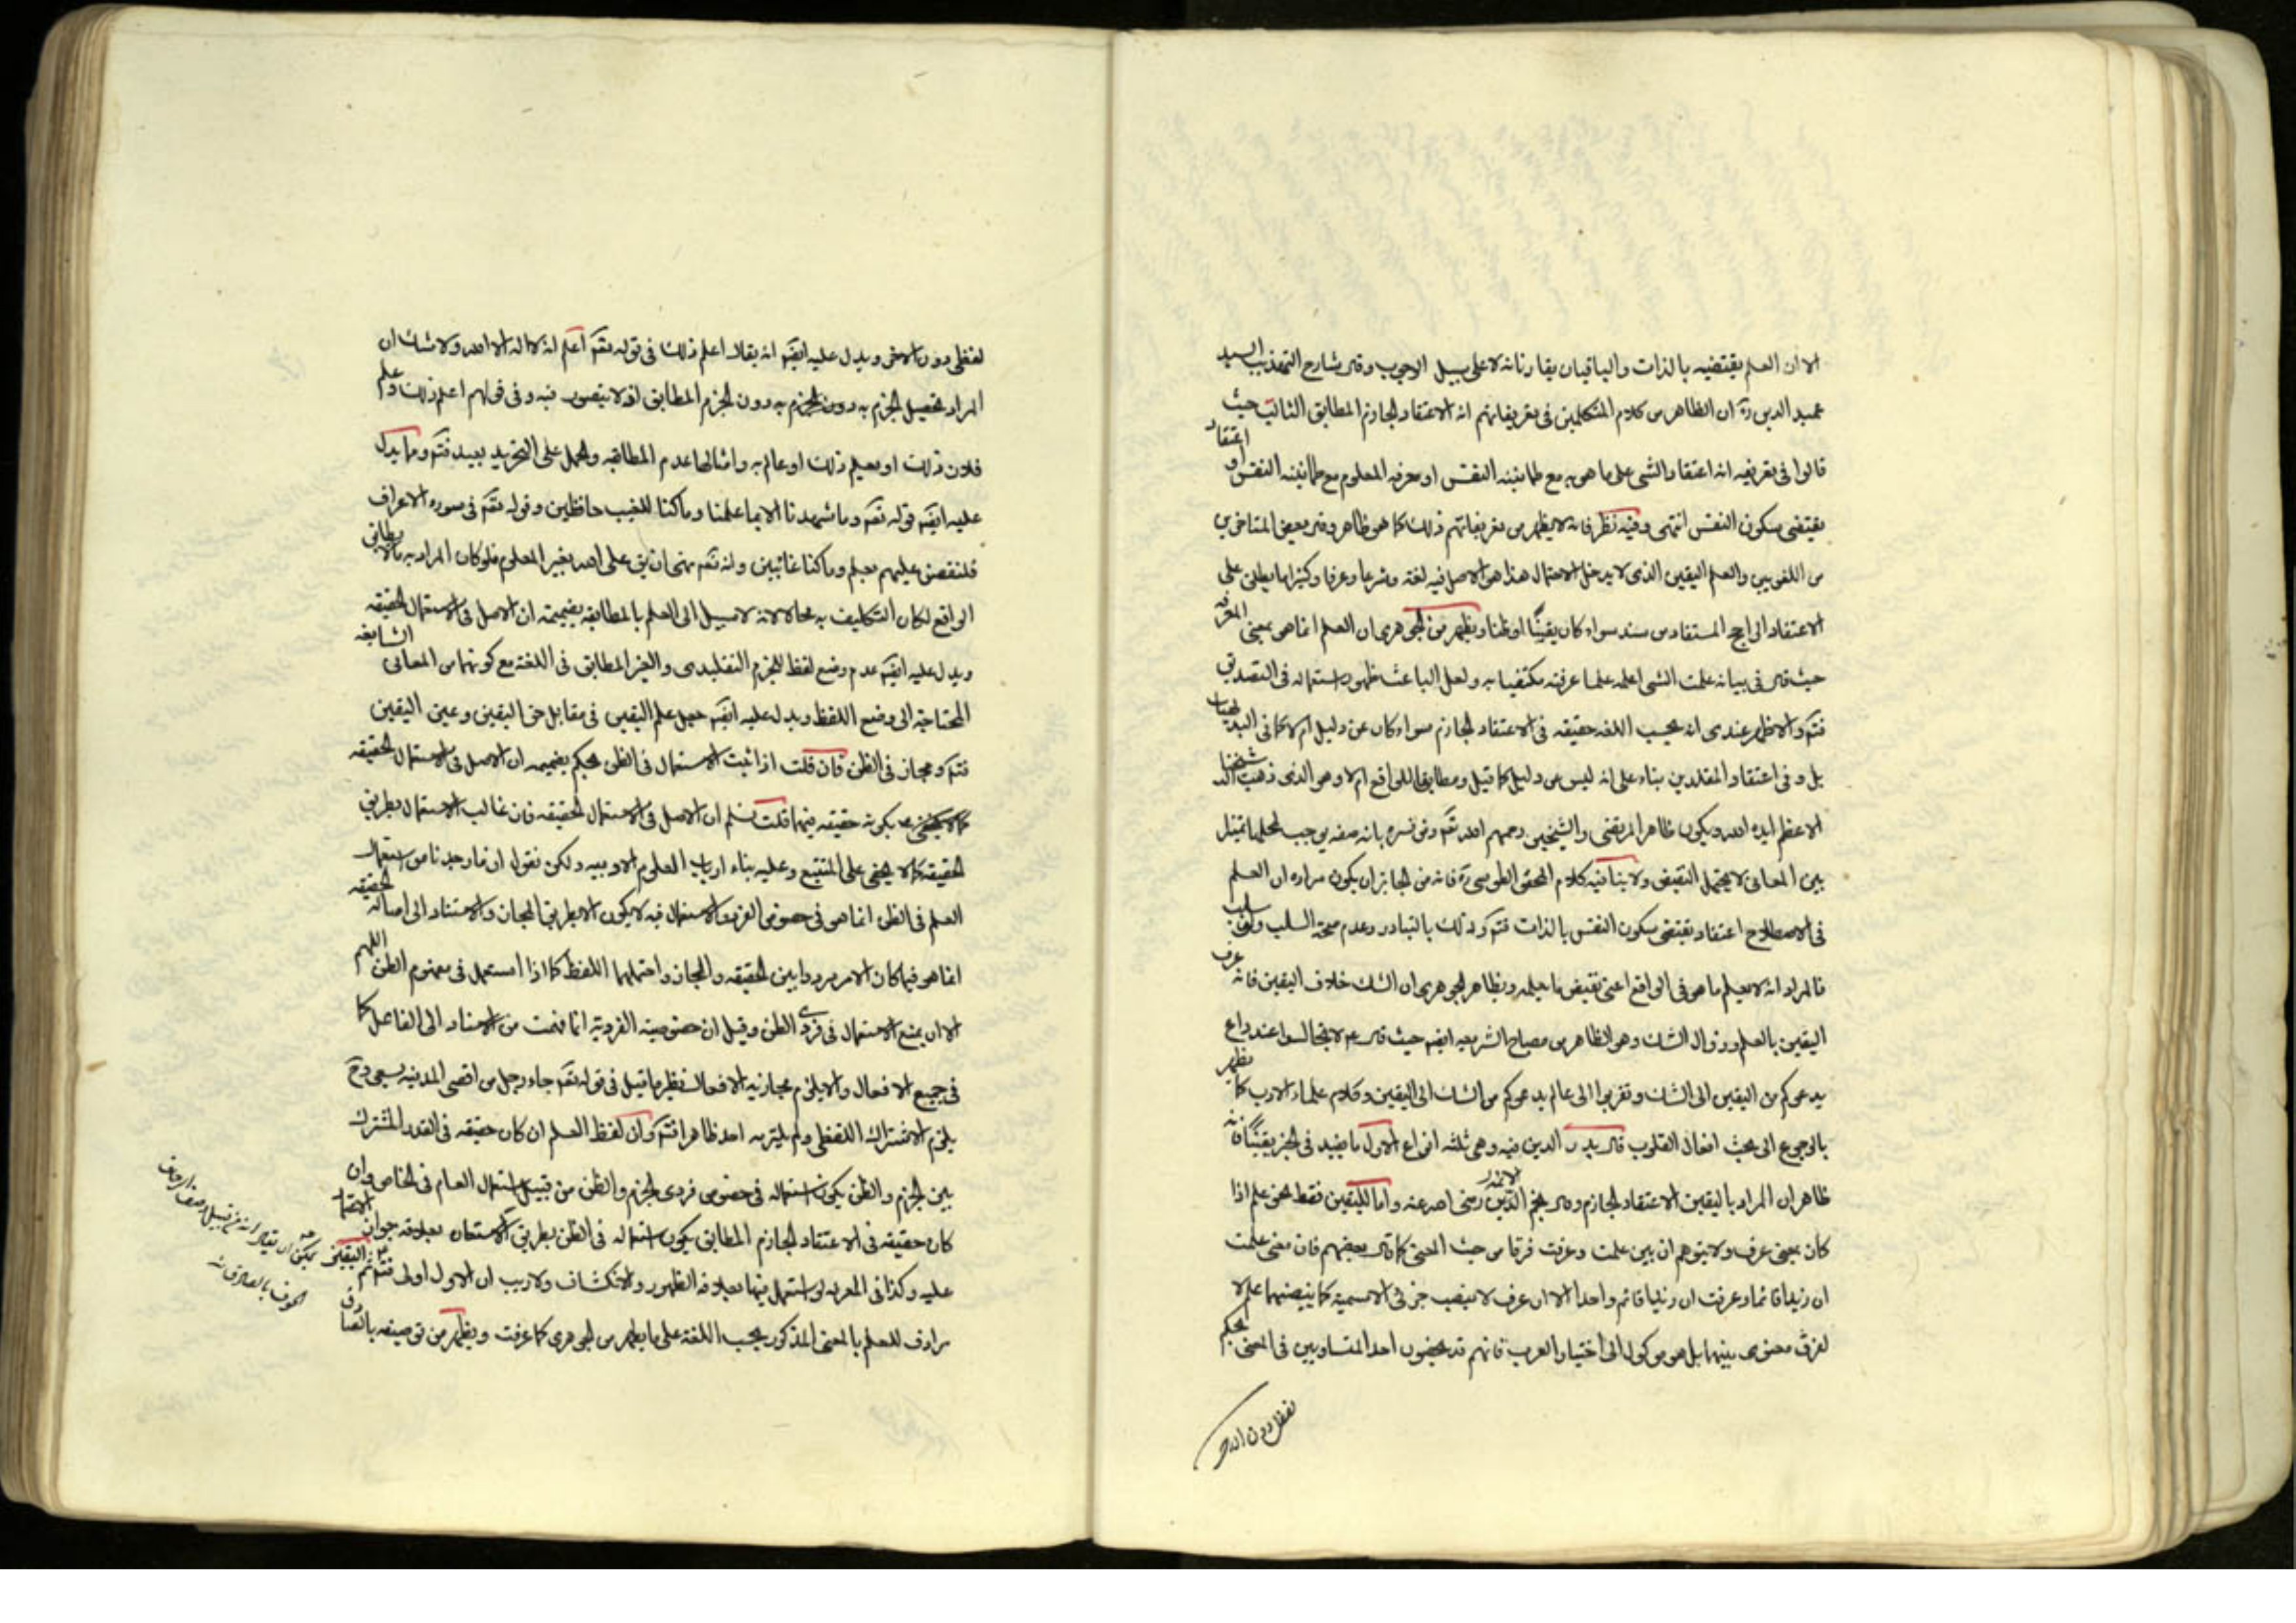 الا ان العلم يقتضيه بالذات والباقيان يقارنانه لا على سبيل الوجوب وقال شارح التهذيب السيد
عميد الدين ره ان الظاهر من كلام المتكلمين في تعريفاتهم انه الاعتقاد الجازم المطابق الثابت حيث
قالوا في تعريفه انه اعتقاد الشي على ما هو به مع طمانينه النفس او معرفه المعلوم مع طمانينه النفس او اعتقاد
يقتضي سكون النفس انتهى وفيه نظر فانه لا يظهر من تعريفاتهم ذلك كما هو ظاهر وفي بعض المتاخرين
من اللغويين والعلم اليقين الذى لا يدخل الاحتمال هذا هو الاصل فيه لغة وشرعا وعرفا وكثيرا ما يطلق على
الاعتقاد الراجح المستفاد من سند سواء كان يقينًا او ظنا ويظهر من الجوهرى ان العلم انما هو بمعنى المعرفه
حيث قال في بيانه علمت الشي اعلمه علما عرفته مكتفيا به ولعل الباعث ظهور استعماله في التصديق
فتم والاظهر عندى انه بحسب اللغه حقيقه في الاعتقاد الجازم سواء كان عن دليل ام لا كما في البديهيات
بل وفي اعتقاد المقلدين بناء على انه ليس من دليل كما قيل ومطابقا للواقع ام لا وهو الذى ذهب اليه شيخنا
الاعظم ايده الله ويكون ظاهر المرتضى والشيخين رحمهم الله تعم ومن فسره بانه صفه يوجب لمحلها تميزا
بين المعانى لا يحتمل النقيض ولا ينافيه كلام المحقق الطوسى ره فانه من الجايز ان يكون مراده ان العلم
في الاصطلاح اعتقاد يقتضى سكون النفس بالذات فتم وذلك بالتبادر وعدم صحة السلب سلب
فالمراد انه لا يعلم ما هو في الواقع اعنى نقيض ما يعلمه وبظاهر الجوهرى ان الشك خلاف اليقين فانه عرف
اليقين بالعلم وزوال الشك وهو الظاهر من مصباح الشريعه ايضم حيث قال ع لا تجالسوا عند داع
يدعوكم من اليقين الى الشك وتقربوا الى عالم يدعوكم من الشك الى اليقين وكلام علماء الادب كما يظهر
بالرجوع الى بحث افعال القلوب قال بدر الدين فيه وهى ثلثه انواع الاول ما يفيد في الخبر يقينًا فانه
ظاهر ان المراد باليقين الاعتقاد الجازم وقال نجم الائمه رضى الدين رضى الله عنه واما لليقين فقط نحو علم اذا
كان بمعنى عرف ولا يتوهم ان بين علمت وعرفت فرقا من حيث المعنى كما قال بعضهم فان معنى علمت
ان زيدا قائما وعرفت ان زيدا قائم واحد الا ان عرف لا ينصب جزئى الاسميه كما ينصبهما علم لا
لفرق معنوى بينهما بل هو موكول الى اختيار العرب فانهم قد يخصون احد المتساويين في المعنى بحكم
لفظى دون الاخر
لفظى دون الاخر ويدل عليه ايضم انه يقال اعلم ذلك في قوله تعم اعلم انه لا اله الا الله ولا شك ان
المراد تحصيل الجزم به دون الجزم المطابق اذ لا يتصور فيه وفي قولهم اعلم ذلك وعلم
فلان ذلك او يعلم ذلك او عالم به وامثالها عدم المطابقه والحمل على التجريد بعيد فتم ومما يدل
عليه ايضم قوله تعم وما شهدنا الا بما علمنا وما كنا للغيب حافظين وقوله تعم في سوره الاعراف
فلنقصن عليهم بعلم وما كنا غائبين وانه تعم نهى ان يق على الله بغير المعلوم فلو كان المراد به ما لا يطابق
الواقع لكان التكليف به محالا لانه لا سبيل الى العلم بالمطابقه بضميمه ان الاصل في الاستعمال الحقيقه
ويدل عليه ايضم عدم وضع لفظ للجزم التقليدى والغير المطابق في اللغة مع كونهما من المعانى الشايعه
المحتاجة الى وضع اللفظ ويدل عليه ايضم جعل علم اليقين في مقابل حق اليقين وعين اليقين
فتم ومجاز في الظن فان قلت اذا ثبت الاستعمال في الظن يحكم بضميمه ان الاصل في الاستعمال الحقيقه
بكونه حقيقه فيهما قلت نسلم ان الاصل في الاستعمال الحقيقه فان غالب الاستعمال بطريق
الحقيقه كما لا يخفى على المتتبع وعليه بناء ارباب العلوم الادبيه ولكن نقول ان ما وجدنا من استعمال
العلم في الظن انما هو في خصوص الفرد والاستعمال فيه لا يكون الا بطريق المجاز والاستناد الى اصاله الحقيقه
انما هو فيما كان الامر مرددا بين الحقيقه والمجاز واحتملهما اللفظ كما اذا استعمل في مفهوم الظن اللهم
الا ان يمنع الاستعمال في فردى الظن وقيل ان خصوصيه الفرديه انما فهمت من الاسناد الى الفاعل كما
في جميع الافعال والا يلزم مجازيه الافعال نظير ما قيل في قوله تعم جاء رجل من اقصى المدينه يسعى وح
يلزم الاشتراك اللفظى ولم يلتزمه احد ظاهرا فتم وان لفظ العلم ان كان حقيقه في القدر المشترك
بين الجزم والظن يكون استعماله في خصوص فردى الجزم والظن من قبيل استعمال العام في الخاص وان
كان حقيقه في الاعتقاد الجازم المطابق يكون استعماله في الظن بطريق الاستعاره بعلاقه جواز الاعتماد
عليه وكذا في المعرفه لو استعمل فيها بعلاقه الظهور والانكشاف ولا ريب ان الاول اولى فتم ثم اليقين
مرادف للعلم بالمعنى المذكور بحسب اللغة على ما يظهر من الجوهرى كما عرفت ويظهر من توصيفه بالصادق
يمكن ان يقال انه من قبيل وصف
بالصادق منه